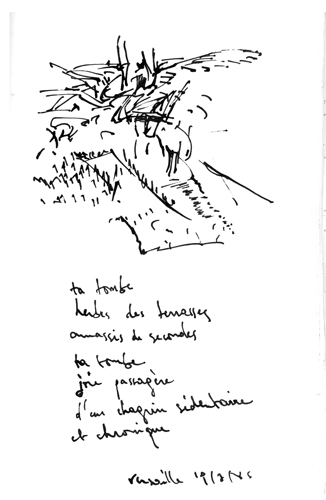 ta tombe
herbes des terrasses
amassis de secondes
ta tombe
joie passagère
d'un chagrin sédentaire
et chronique